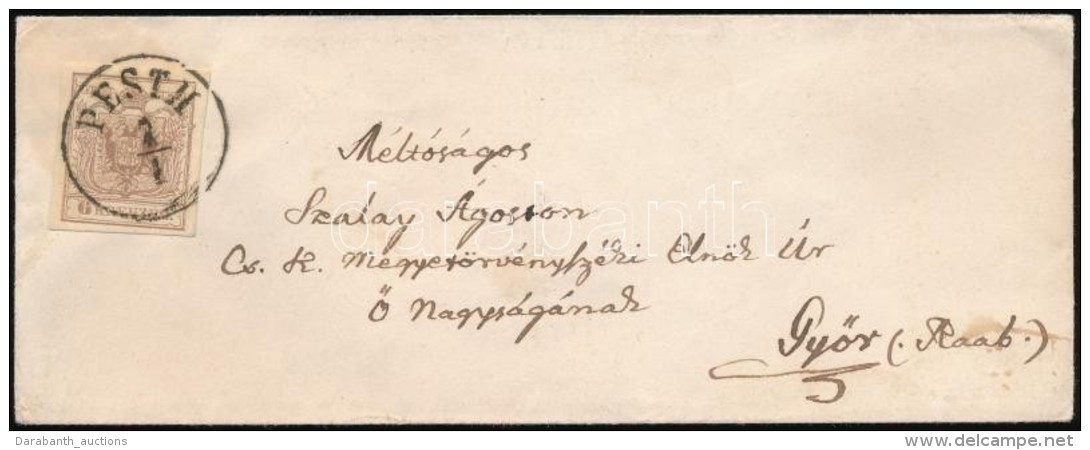 PESTH
2/1
6 KREUZER
Méltóságos
Szalay Ágoston
Cs. K. Megyetörvényszéki Elnök Úr
Ő Nagyságának
Győr (. Raab.)
darabanth
Darabanth_auctions
www.delcampe.net